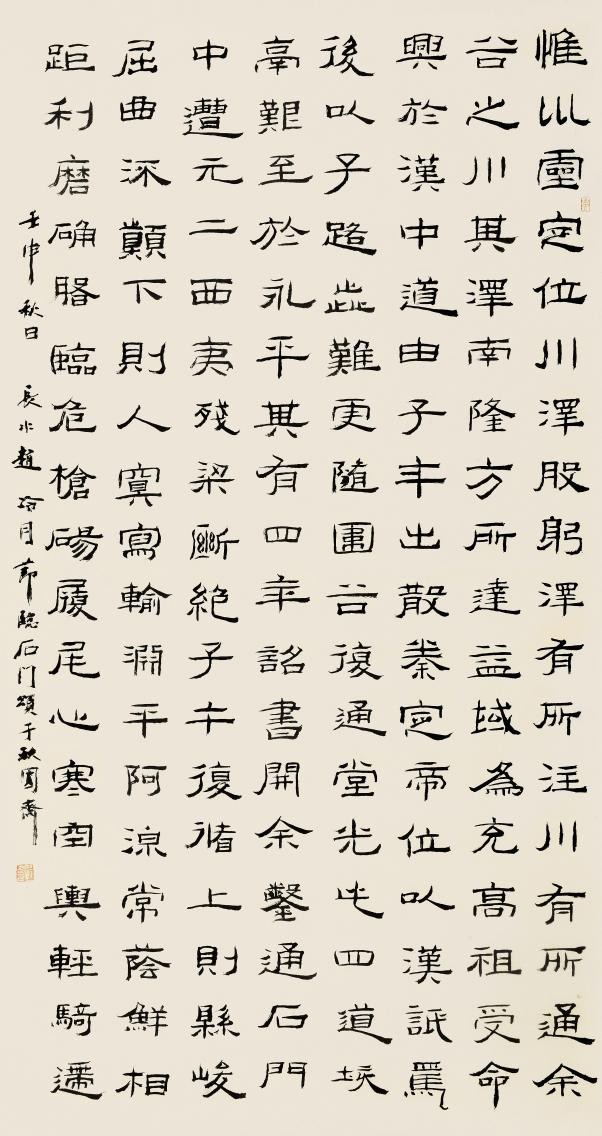 惟以靈定位川澤股躬澤有所注川有所通余
谷之川其澤南隆方所達益域為充高祖受命
興於漢中道由子午出散秦定帝位以漢詆焉
後以子路歰難更隨圍谷復通堂光此四道垓
鬲艱至於永平其有四年詔書開余鑿通石門
中遭元二西夷殘梁斷絕子午復循上則縣峻
屈曲流顛下則人寞寫輸淵平阿湶常蔭鮮相
距利磨确胳臨危槍碭履尾心寒空輿輕騎遰
壬申秋日 長水趙冷月節臨石門頌于秋圃齋